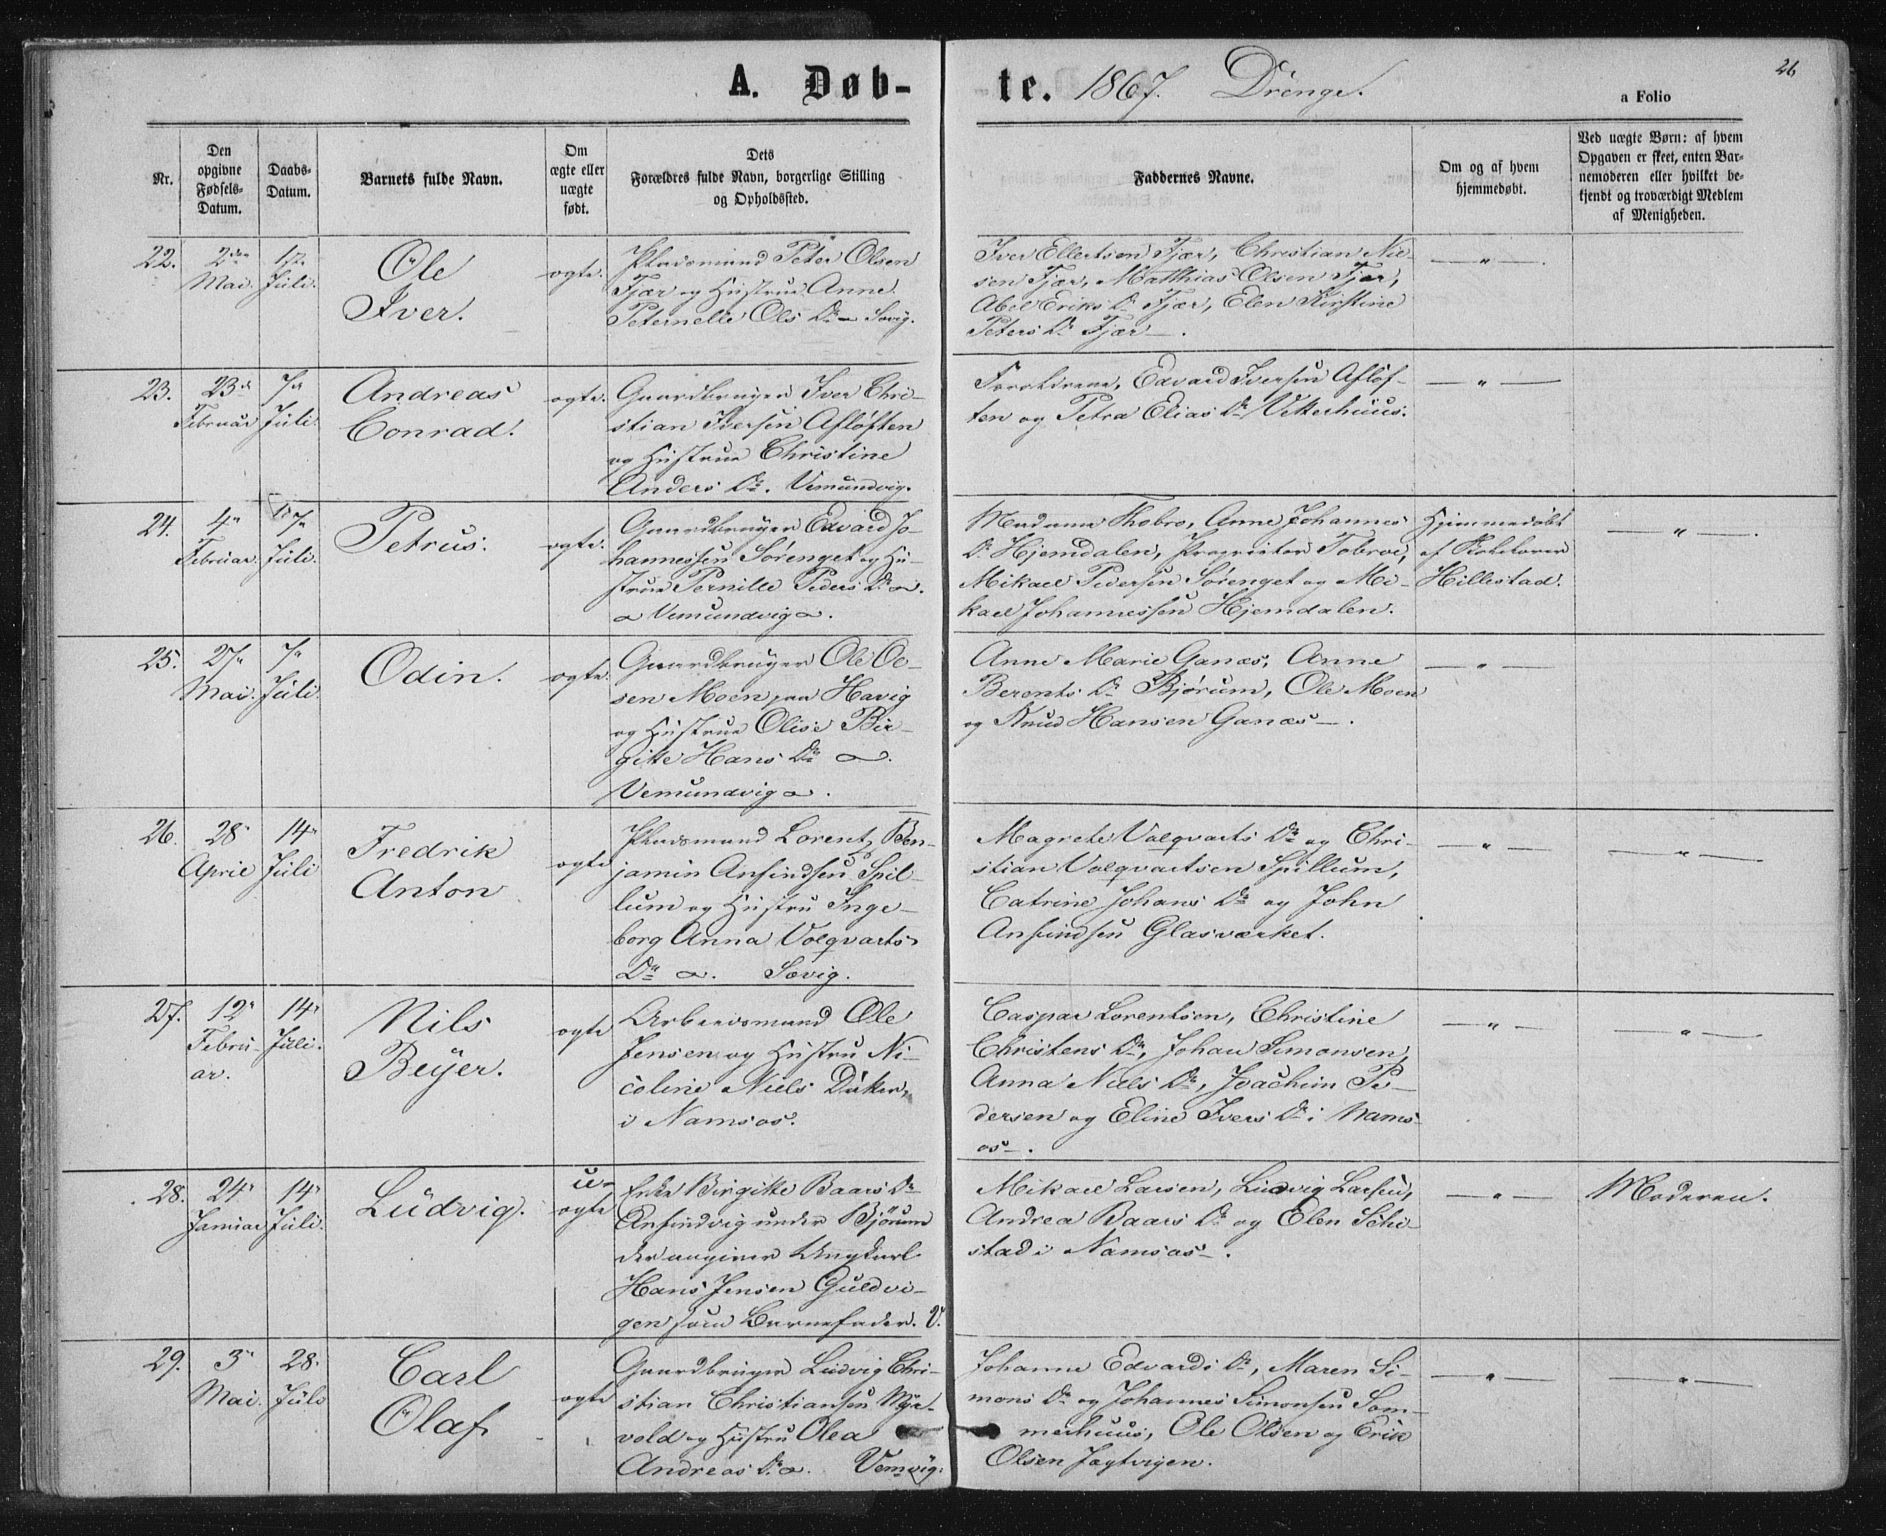 A. Døb-
te. 1867. Drenge.
a Folio
26
Nr.
Den opgivne Fødsels-Datum.
Daabs-Datum.
Barnets fulde Navn.
Om ægte eller uægte født.
Dets Forældres fulde Navn, borgerlige Stilling og Opholdssted.
Faddernes Navne.
Om og af hvem hjemmedøbt.
Ved uægte Børn: af hvem Opgaven er skeet, enten Barnemoderen eller hvilket bekjendt og troværdigt Medlem af Menigheden.
22.
2den Mai.
Juli.
Ole
Iver.
ægte.
Pladsmand Peter Olsen
Fjær og Hustrue Anne
Peternelle Ols Dr Sævig.
Iver Ellertsen Fjær, Christian Niel
sen Fjær, Matthias Olsen Fjær,
Abel Eriks Dr Fjær, Elen Kirstine
Peters Dr Fjær —.
— " —.
23.
23d Februar
7d Juli.
Andreas
Conrad.
ægte.
Gaardbruger Iver Chri-
stian Iversen Afløften
og Hustrue Christine
Anders Dr. Vemundvig.
Forældrene, Edvard Iversen Afløf-
ten og Petra Elias Dr Vetterhuus.
— " —
24.
4" Februar.
7" Juli.
Petrus.
ægte.
Gaardbruger Edvard Jo-
hannessen Sørenget og Hu-
strue Pernille Peders Dr
Vemundvig.
Madame Thobro, Anne Johannes
Dr Hjemdalen, Proprietær Tobroe,
Mikael Pedersen Sørenget og Mi-
kael Johannessen Hjemdalen.
Hjemmedøbt
af Kirketører
Hillestad.
— " —.
25.
27" Mai.
7" Juli
Odin.
ægte.
Gaardbruger Ole Ol-
sen Moen paa Havig
og Hustrue Olise Bir-
gitte Hans Dr
Vemundvig.
Anne Marie Ganæs, Anne
Berents Dr Bjørum, Ole Moen
og Knud Hansen Ganæs —.
— " —
26.
28" April
14" Juli
Fredrik
Anton
ægte
Pladsmand Lorents Ben-
jamin Anfindsen Spil-
lum og Hustru Inge-
borg Anna Volqvarts
Dr Sævig.
Magrete Volqvarts Dr og Chri-
stian Volqvartsen Spillum,
Catrine Johans Dr og John
Anfindsen Glasværket.
— " —
— " —
27.
12" Febru-
ar.
14" Juli.
Nils
Beyer.
ægte
Arbeidsmand Ole
Jensen og Hustru Ni-
coline Niels Datter,
i Namsos.
Caspar Lorentsen, Christine
Christens Dr, Johan Simonsen,
Anna Niels Dr, Joachim Pe-
dersen og Eline Ivers Dr i Nams-
os —.
— " —
— " —
28.
24" Januar
14" Juli.
Ludvig.
u-
ægte
Enke Birgitte Baars Dr
Anfindvig under Bjørum
der angiver Ungkarl
Hans Jensen Guldvi-
gen som Barnefader. V.
Mikael Larsen, Ludvig Larsen,
Andrea Baars Dr og Elen Schi-
stad i Namsos —.
— " —
Moderen.
29.
3" Mai.
28" Juli
Carl
Olaf
ægte
Gaardbruger Ludvig Chri-
stian Christiansen Myr-
vold og Hustru Olea
Andreas Dr. Vemvig.
Johanne Edvards Dr, Maren Si-
mons Dr og Johannes Simonsen Som-
merhuus, Ole Olsen og Erik
Olsen Jagtvigen.
— " —
— " —